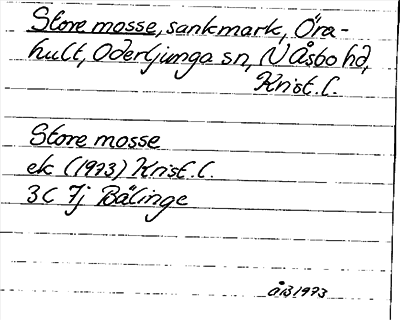 Store mosse, sankmark, Öra-
hult, Oderljunga sn, N Åsbo hd,
Krist. l.
Store mosse
ek (1973) Krist. l.
3C 7j Bälinge
ÅB 1973